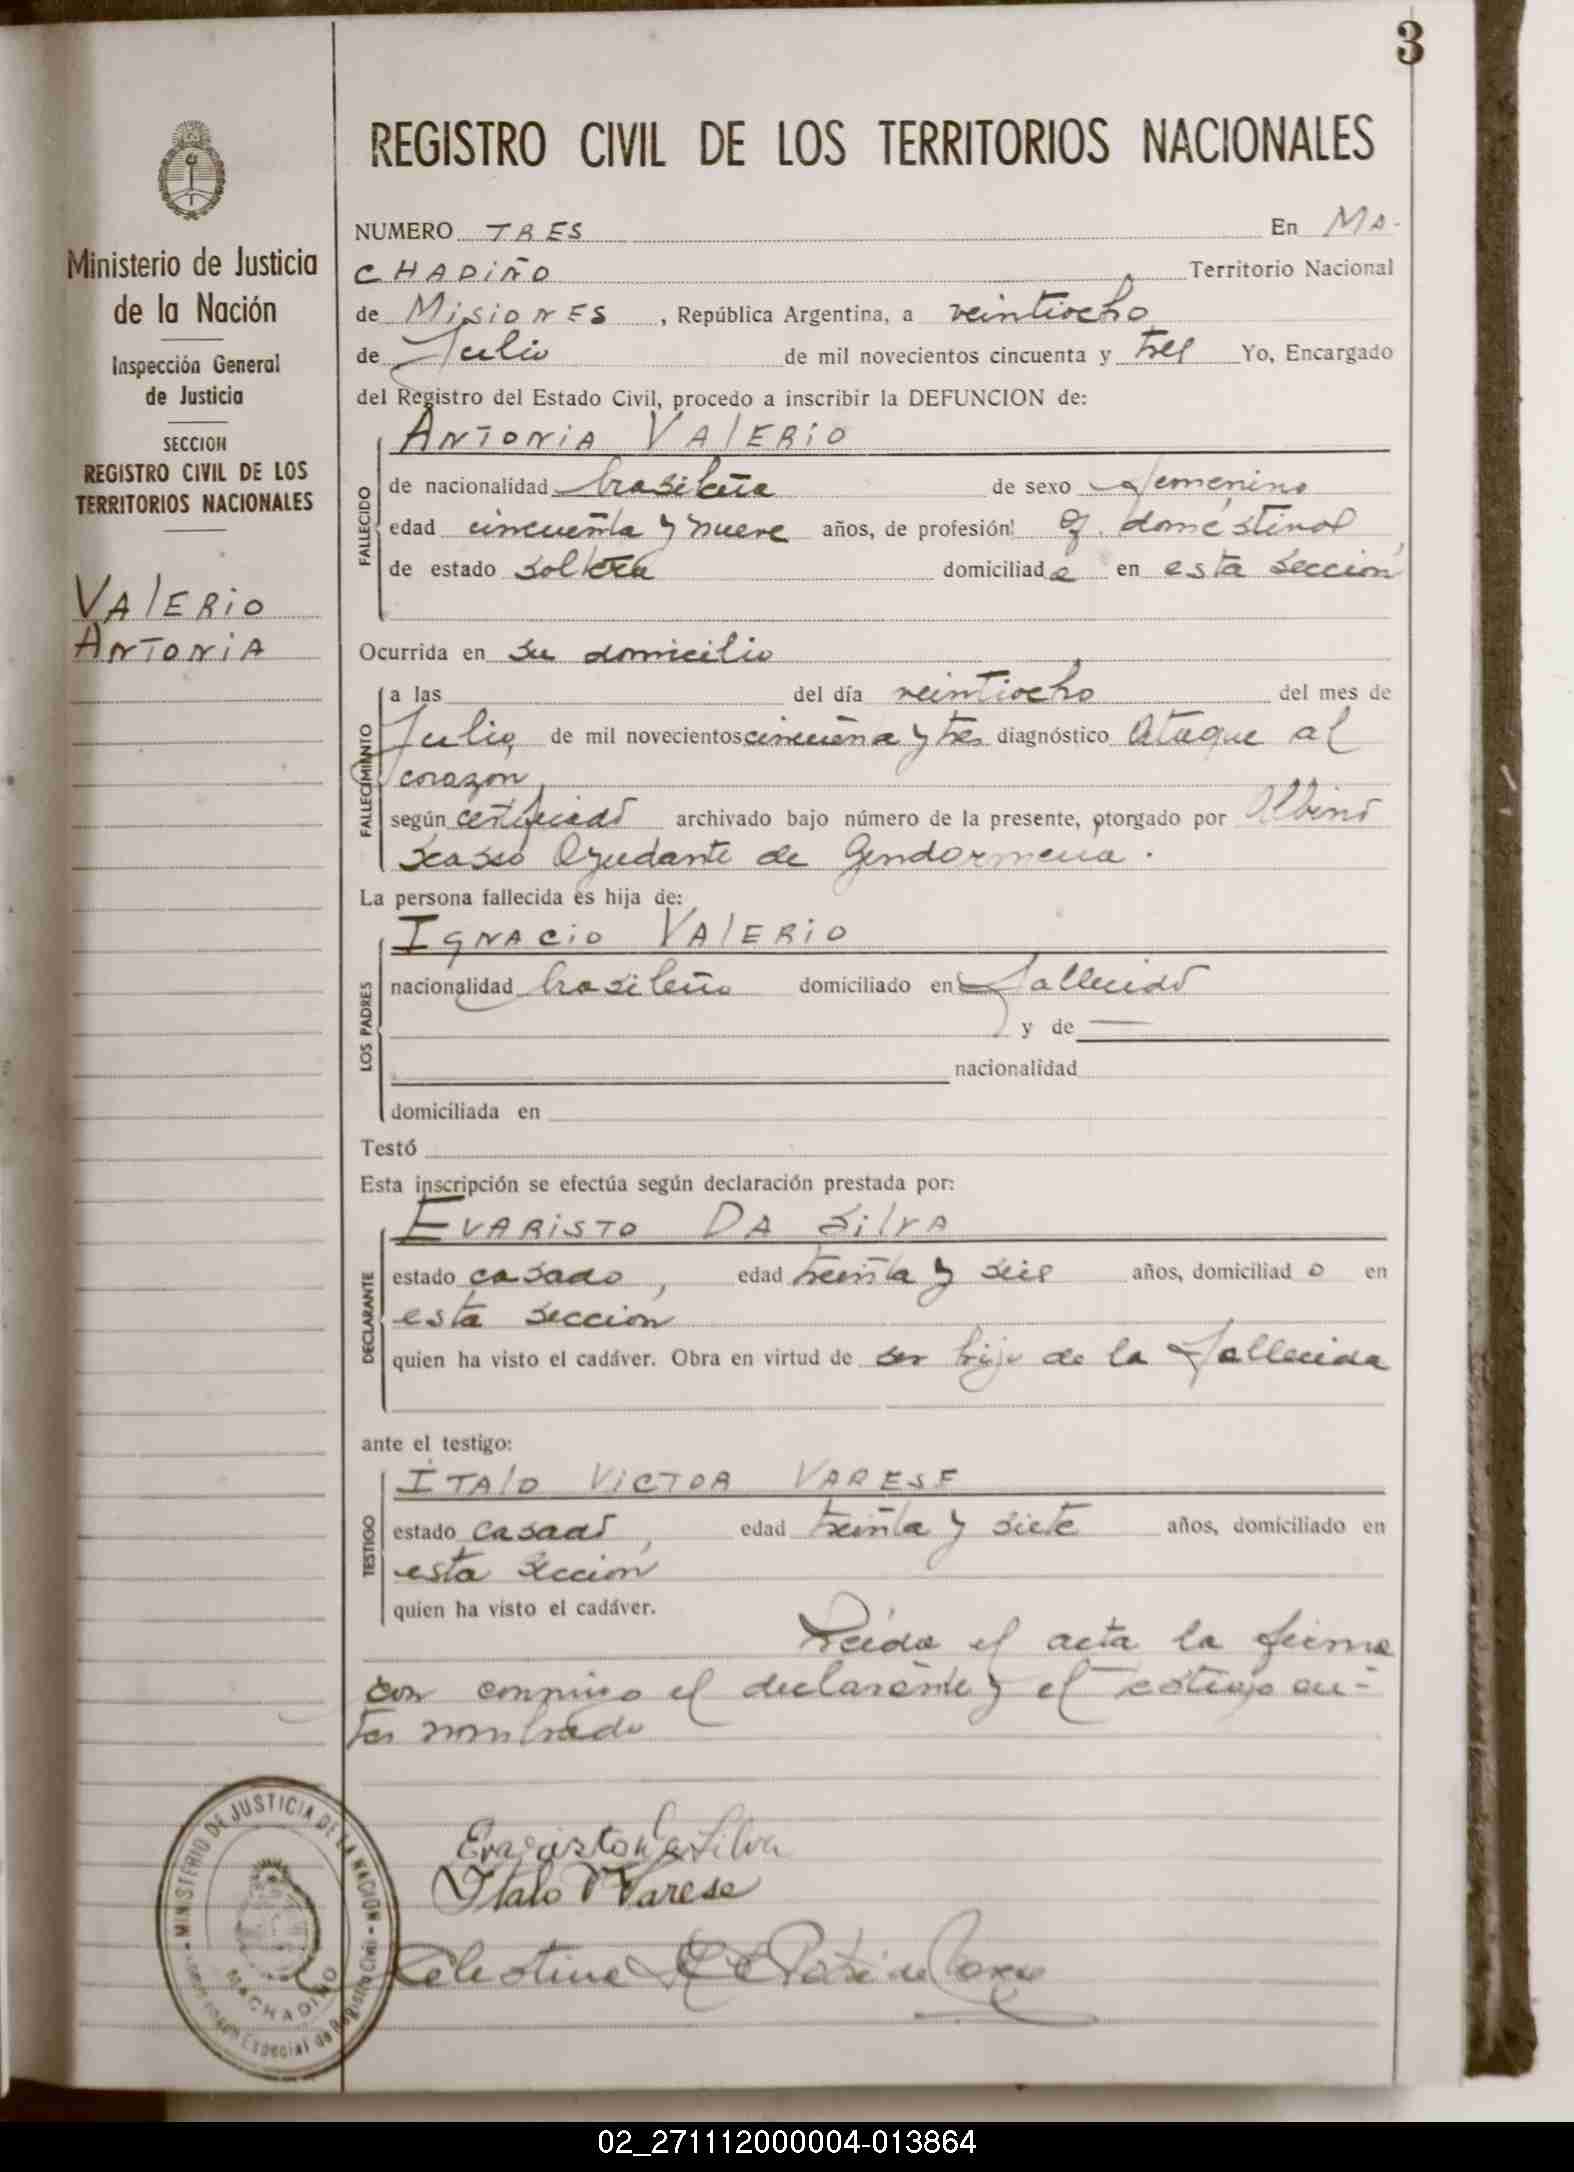 3
REGISTRO CIVIL DE LOS TERRITORIOS NACIONALES
Ministerio de Justicia
de la Nación
Inspección General
de Justicia
SECCION
REGISTRO CIVIL DE LOS
TERRITORIOS NACIONALES
VAlERiO
ANTONiA
NUMERO TRES En MA-
CHADiÑO Territorio Nacional
de MiSiONES, República Argentina, a veintiocho
de Julio de mil novecientos cincuenta y tres Yo, Encargado
del Registro del Estado Civil, procedo a inscribir la DEFUNCION de:
ANTONiA VAlERiO
FALLECIDO
de nacionalidad brasileña de sexo femenino
edad cincuenta y nueve años, de profesión q. domésticos
de estado soltera domiciliada en esta sección
Ocurrida en su domicilio
FALLECIMIENTO
a las del día veintiocho del mes de
Julio, de mil novecientos cincuenta y tres diagnóstico Ataque al
corazon
según certificado archivado bajo número de la presente, otorgado por Albino
Scasso Ayudante de Gendarmeria.
La persona fallecida es hija de:
IGNACiO VAlERiO
LOS PADRES
nacionalidad brasileño domiciliado en fallecido
y de —
nacionalidad
domiciliada en
Testó
Esta inscripción se efectúa según declaración prestada por:
EVARiSTO DA SilVA
DECLARANTE
estado casado, edad treinta y seis años, domiciliado en
esta sección
quien ha visto el cadáver. Obra en virtud de ser hijo de la fallecida
ante el testigo:
ITAlO VICTOR VARESE
TESTIGO
estado casado, edad treinta y siete años, domiciliado en
esta sección
quien ha visto el cadáver.
Leída el acta la firma
con conmigo el declarante y el testigo an-
tes nombrado
Evaristo da Silva
Italo V Varese
Celestina
MINISTERIO DE JUSTICIA DE LA NACION
MACHADINO
Especial de Registro Civil
02_271112000004-013864